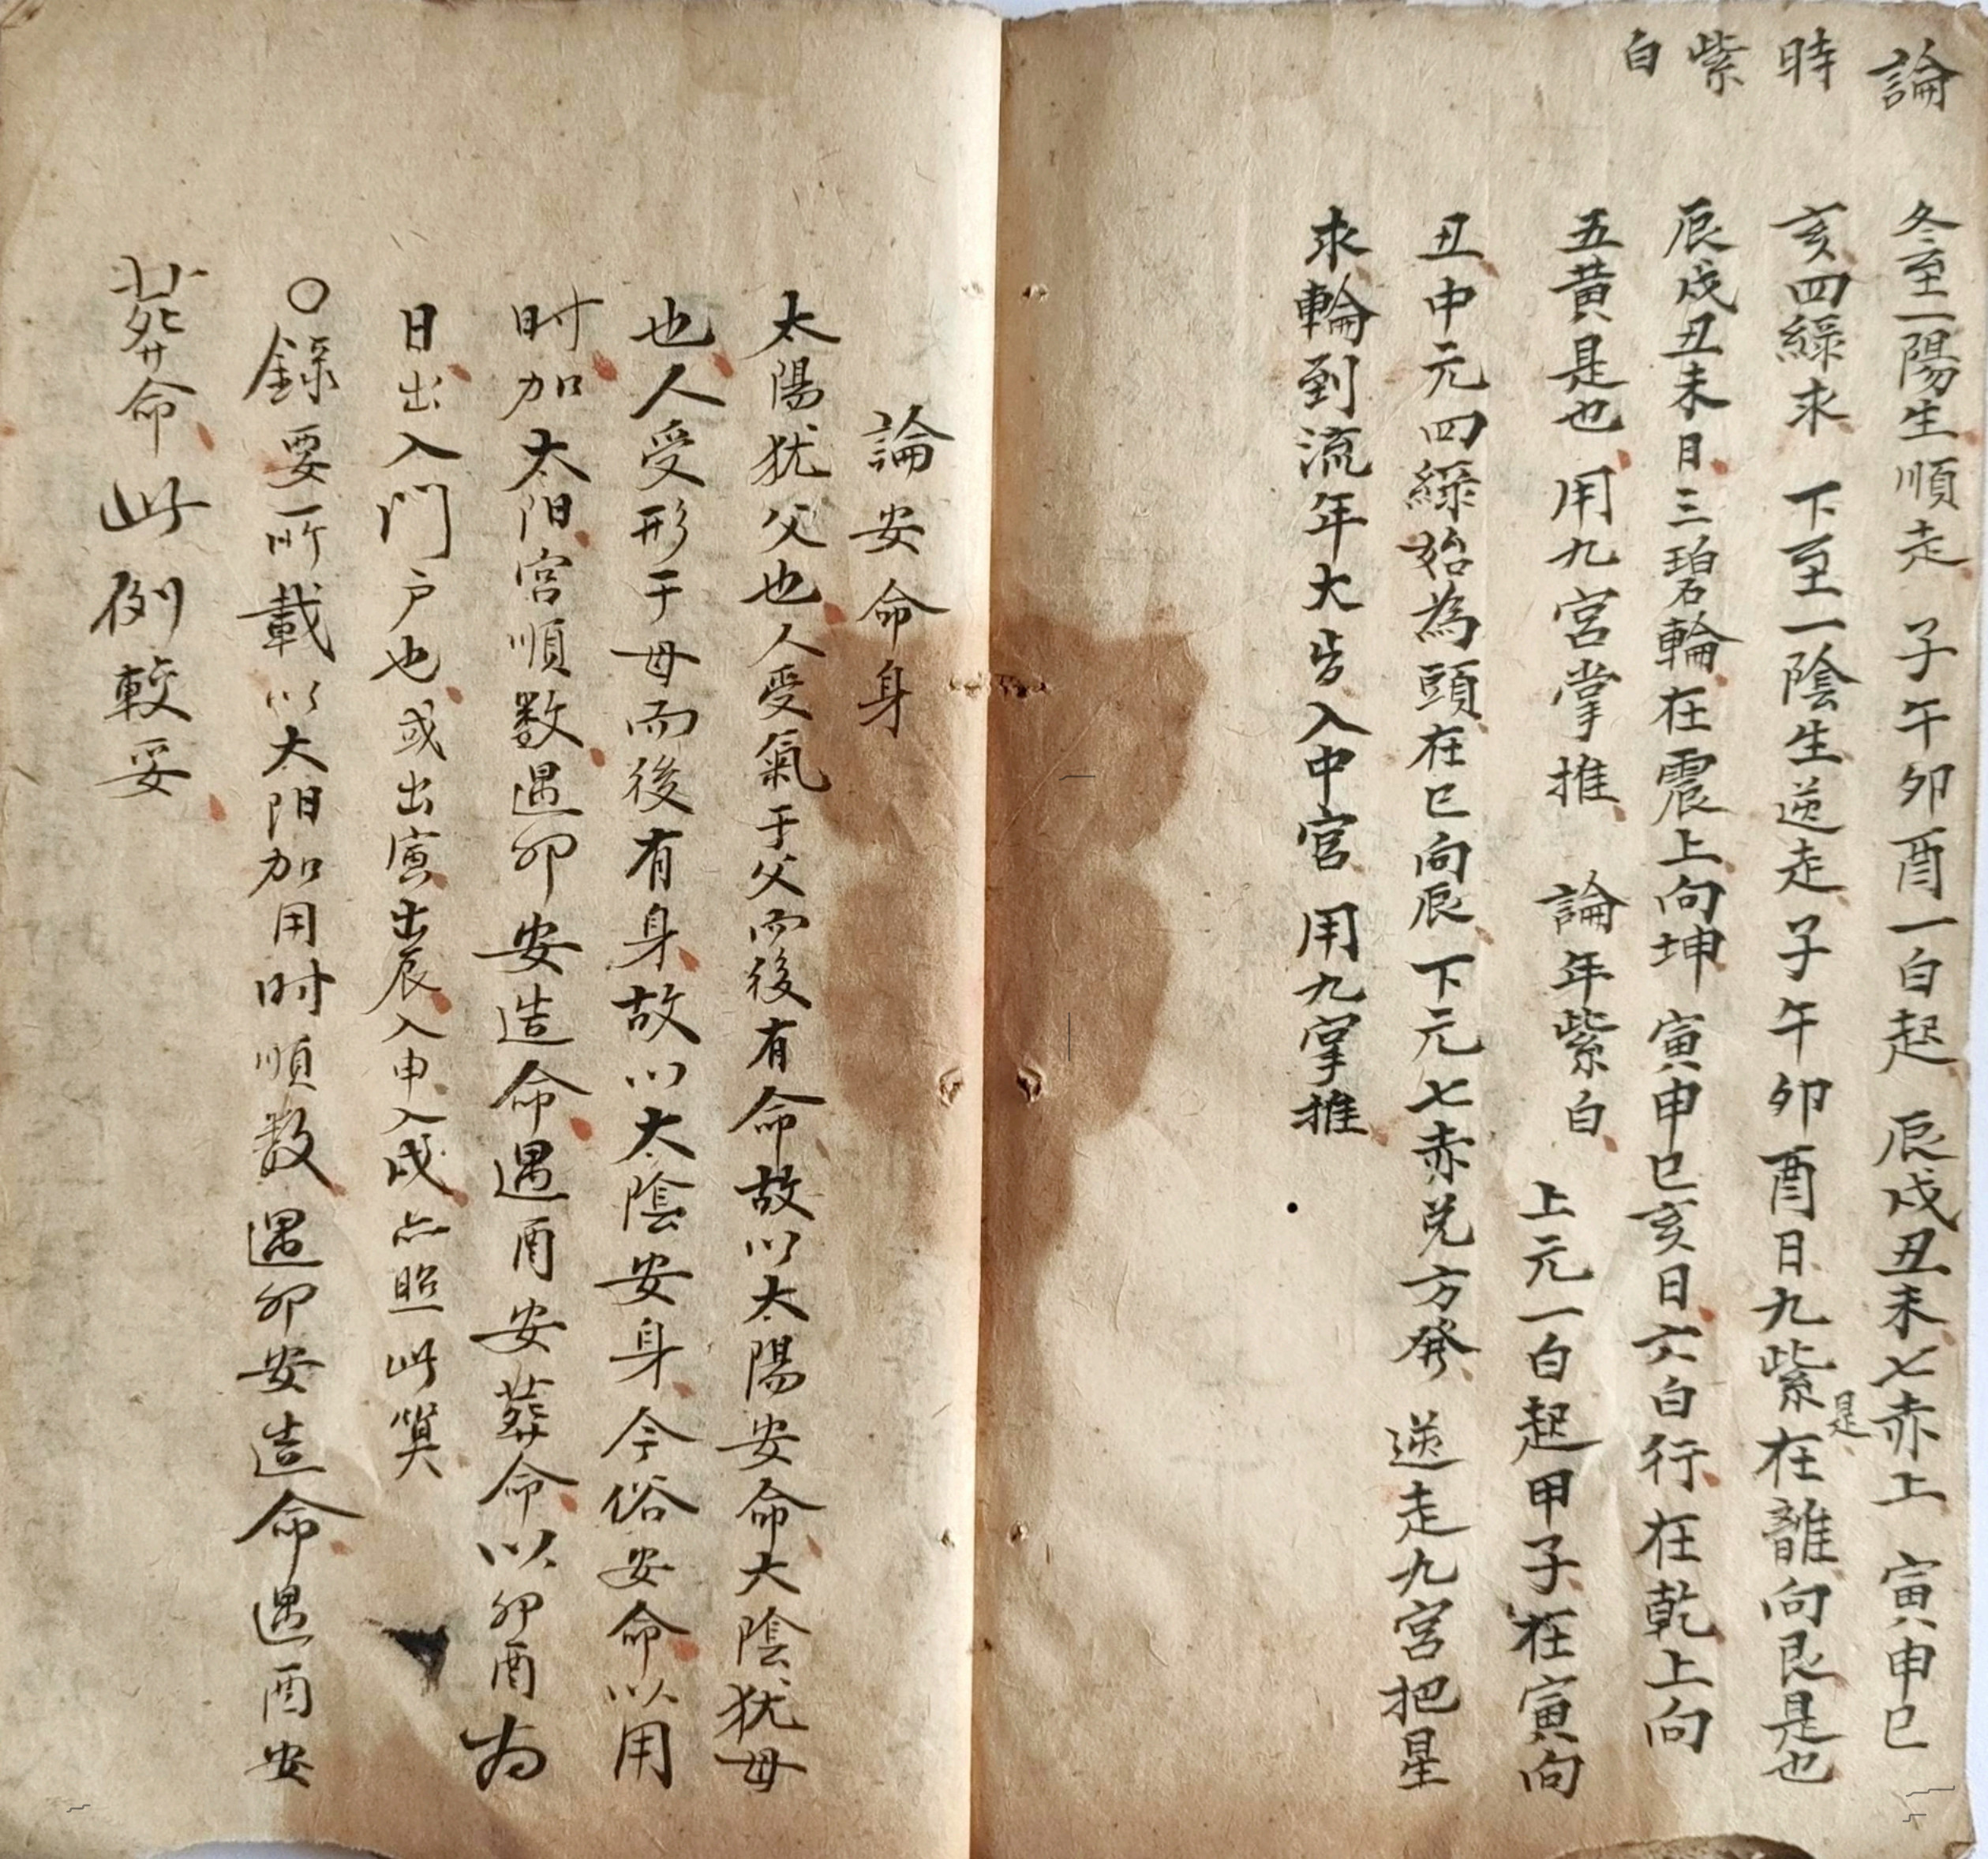 論時紫白
冬至一陽生順走 子午卯酉一白起 辰戌丑未七赤上 寅申巳
亥四綠求 下至一陰生逆走子午卯酉日九紫在離向艮是也
是
辰戌丑未日三碧輪在震上向坤 寅申巳亥日六白行在乾上向
五黃是也 用九宮掌推 論年紫白 上元一白起甲子在寅向
丑中元四綠始為頭在巳向辰 下元七赤兌方發 逆走九宮把星
求輪到流年大皆入中宮 用九掌推
論安命身
太陽犹父也人受氣于父而後有命故以太陽安命太陰犹母
也人受形于母而後有身故以太陰安身今俗安命以用
时加太阳宮順数遇卯安造命遇酉安葬命以卯酉为
日出入門户也或出寅出辰入申入戌亦照此算
○錄要所載以太阳加用时順数遇卯安造命遇酉安
葬命此例較妥